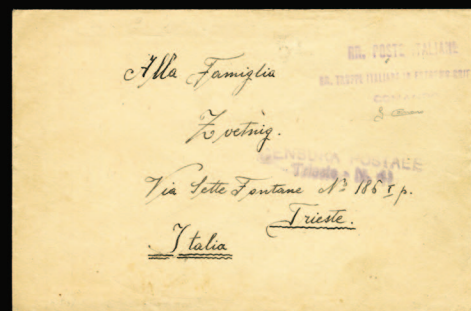 RR. POSTE ITALIANE
Alla Famiglia
Zvetnig.
CENSURA POSTALE
Trieste
Via Sette Fontane Nº 186 I p.
Trieste.
Italia